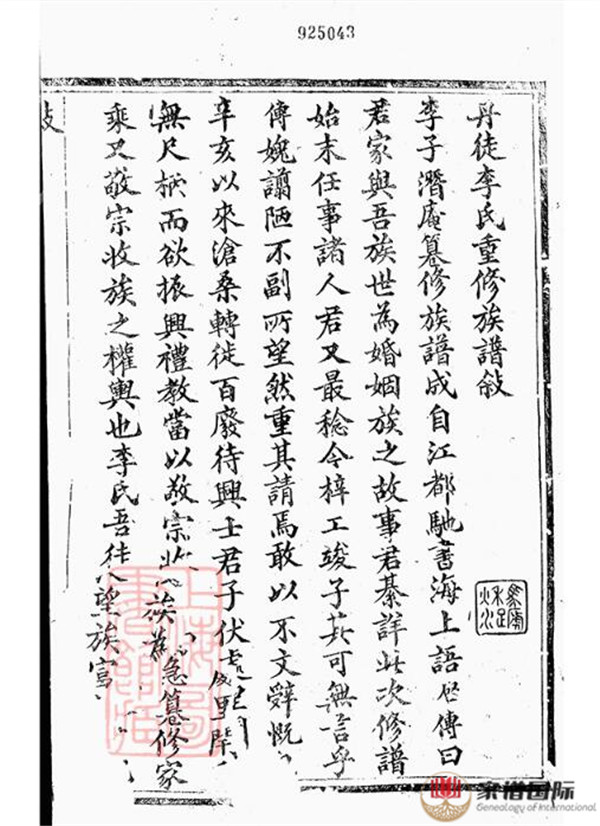 925043
丹徒李氏重修族譜敍
李子潛庵纂修族譜成自江都馳書海上語啓傳曰
君家與吾族世為婚姻族之故事君綦詳此次修譜
始末任事諸人君又最稔今梓工竣子其可無言乎
傳媿譾陋不副所望然重其請焉敢以不文辭慨
辛亥以來滄桑轉徙百廢待興士君子伏處
無尺柄而欲振興禮教當以敬宗收族為急纂修家
乘又敬宗收族之權輿也李氏吾徒望族
家谱国际
Genealogy of International